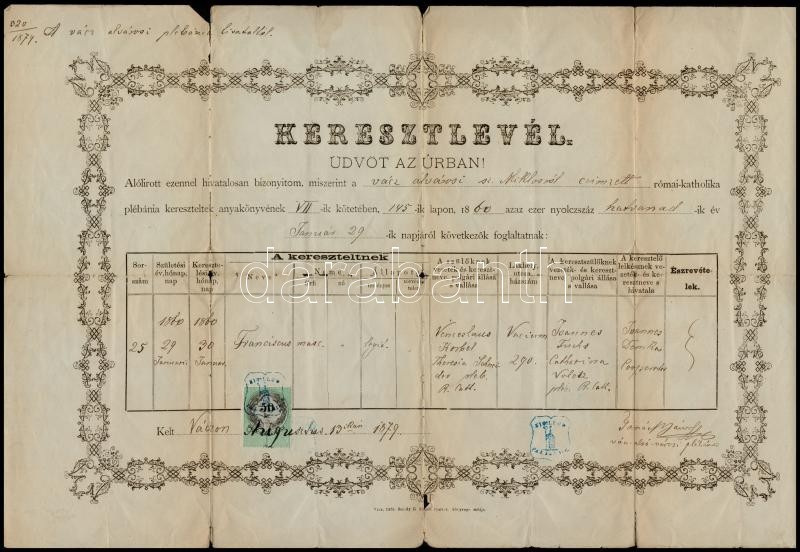 1879. A vácz alvárosi plébánia hivataltól.
KERESZTLEVÉL.
ÜDVÖT AZ ÚRBAN!
Alólirott ezennel hivatalosan bizonyitom, miszerint a vácz alvárosi sz. Miklósról czimzett római-katholika
plébánia kereszteltek anyakönyvének VII -ik kötetében, 145 -ik lapon, 1860 azaz ezer nyolczszáz hatvanad -ik év
Január 29 -ik napjáról következők foglaltatnak:
A kereszteltnek
Sor-szám
Születési év, hónap, nap
Keresztelési év, hónap, nap
Neve
Neme
Állapota
A szülőknek vezeték- és keresztneve polgári állása s vallása
Lakhely, utcza, házszám
A keresztszülőknek vezeték- és keresztneve polgári állása s vallása
A keresztelő lelkésznek vezeték- és keresztneve s hivatala
Észrevételek.
25
1860 29 Januari.
1860 30 Januar.
Franciscus
masc.
Venceslaus
Theresia
R. Cath.
Vacium 290.
Joannes
Catharina
R. Cath.
Joannes
darabanth
50
Kelt Váczon Augusztus 13 án 1879.